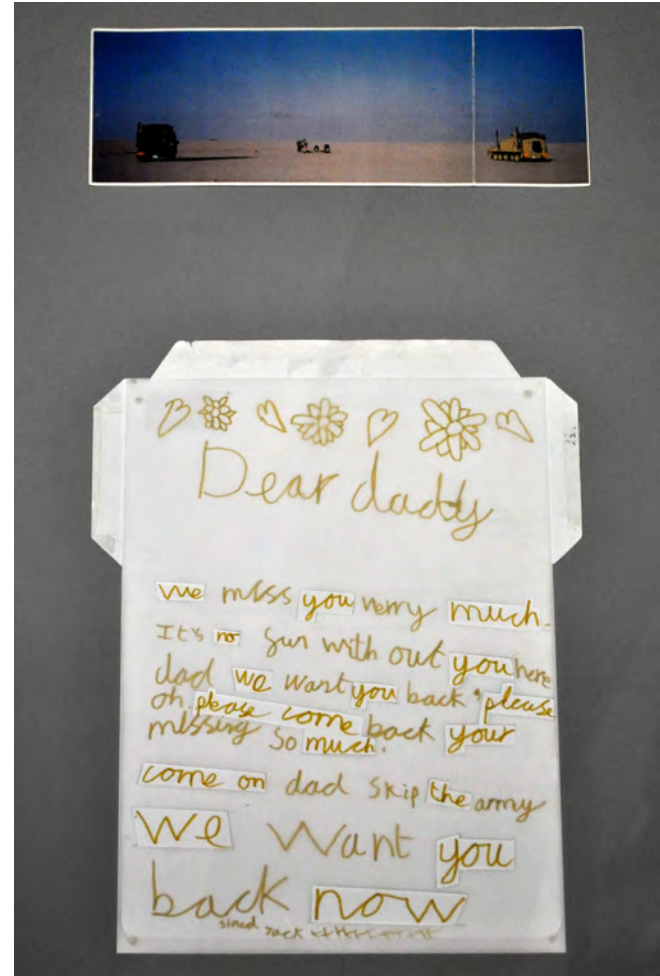 Dear daddy
we miss you verry much.
It's no fun with out you here
dad we want you back, please
oh please come back your
missing so much.
come on dad skip the army
We want you
back now
sined Jack